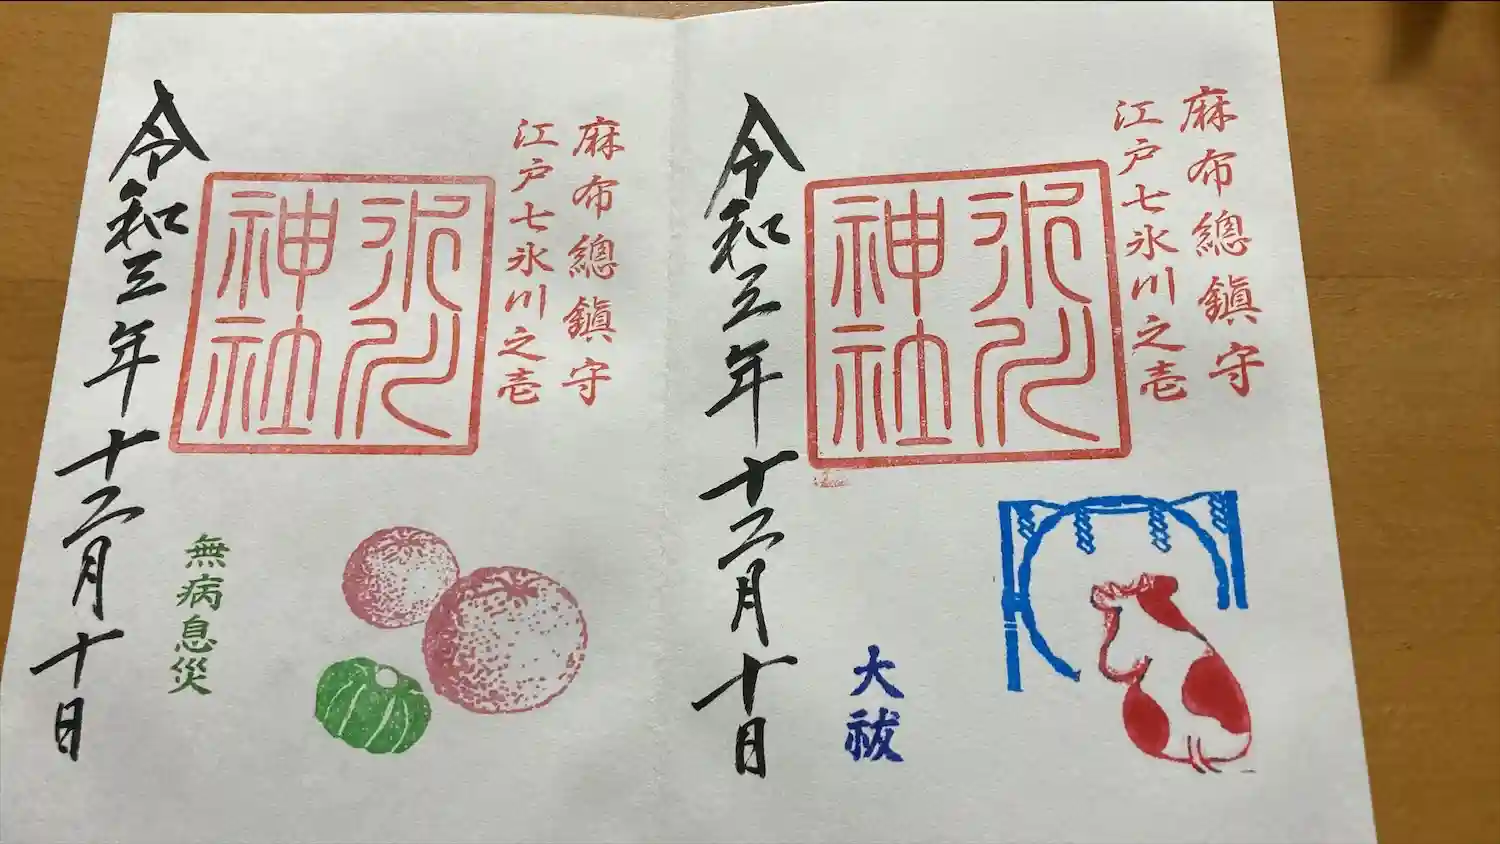 麻布總鎮守
江戸七氷川之壱
氷川神社
大祓
令和三年十二月十日
麻布總鎮守
江戸七氷川之壱
氷川神社
無病息災
令和三年十二月十日